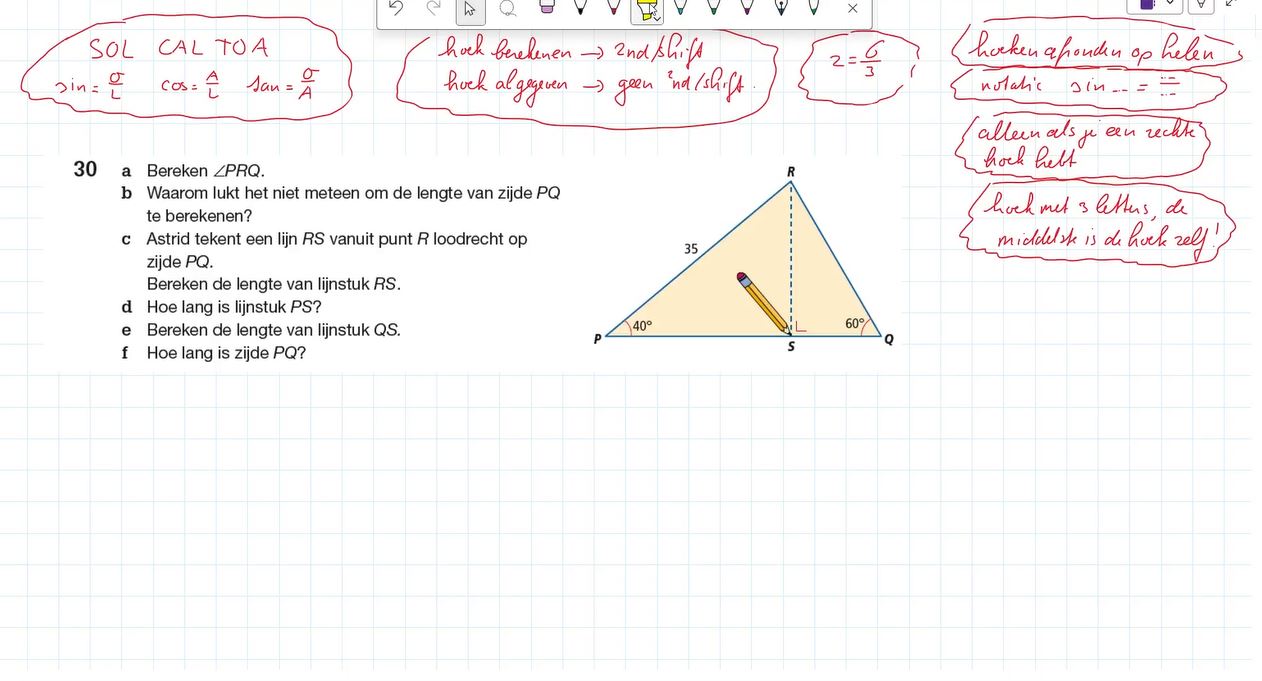 SOL CAL TOA
sin = O/L cos = A/L tan = O/A
hoek berekenen → 2nd/shift
hoek al gegeven → geen 2nd/shift.
2 = 6/3
!
hoeken afronden op helen
notatie sin ... = ...
alleen als je een rechte
hoek hebt
hoek met 3 letters, de
middelste is de hoek zelf!
30 a Bereken ∠PRQ.
b Waarom lukt het niet meteen om de lengte van zijde PQ
te berekenen?
c Astrid tekent een lijn RS vanuit punt R loodrecht op
zijde PQ.
Bereken de lengte van lijnstuk RS.
d Hoe lang is lijnstuk PS?
e Bereken de lengte van lijnstuk QS.
f Hoe lang is zijde PQ?
R
35
40°
60°
P
S
Q